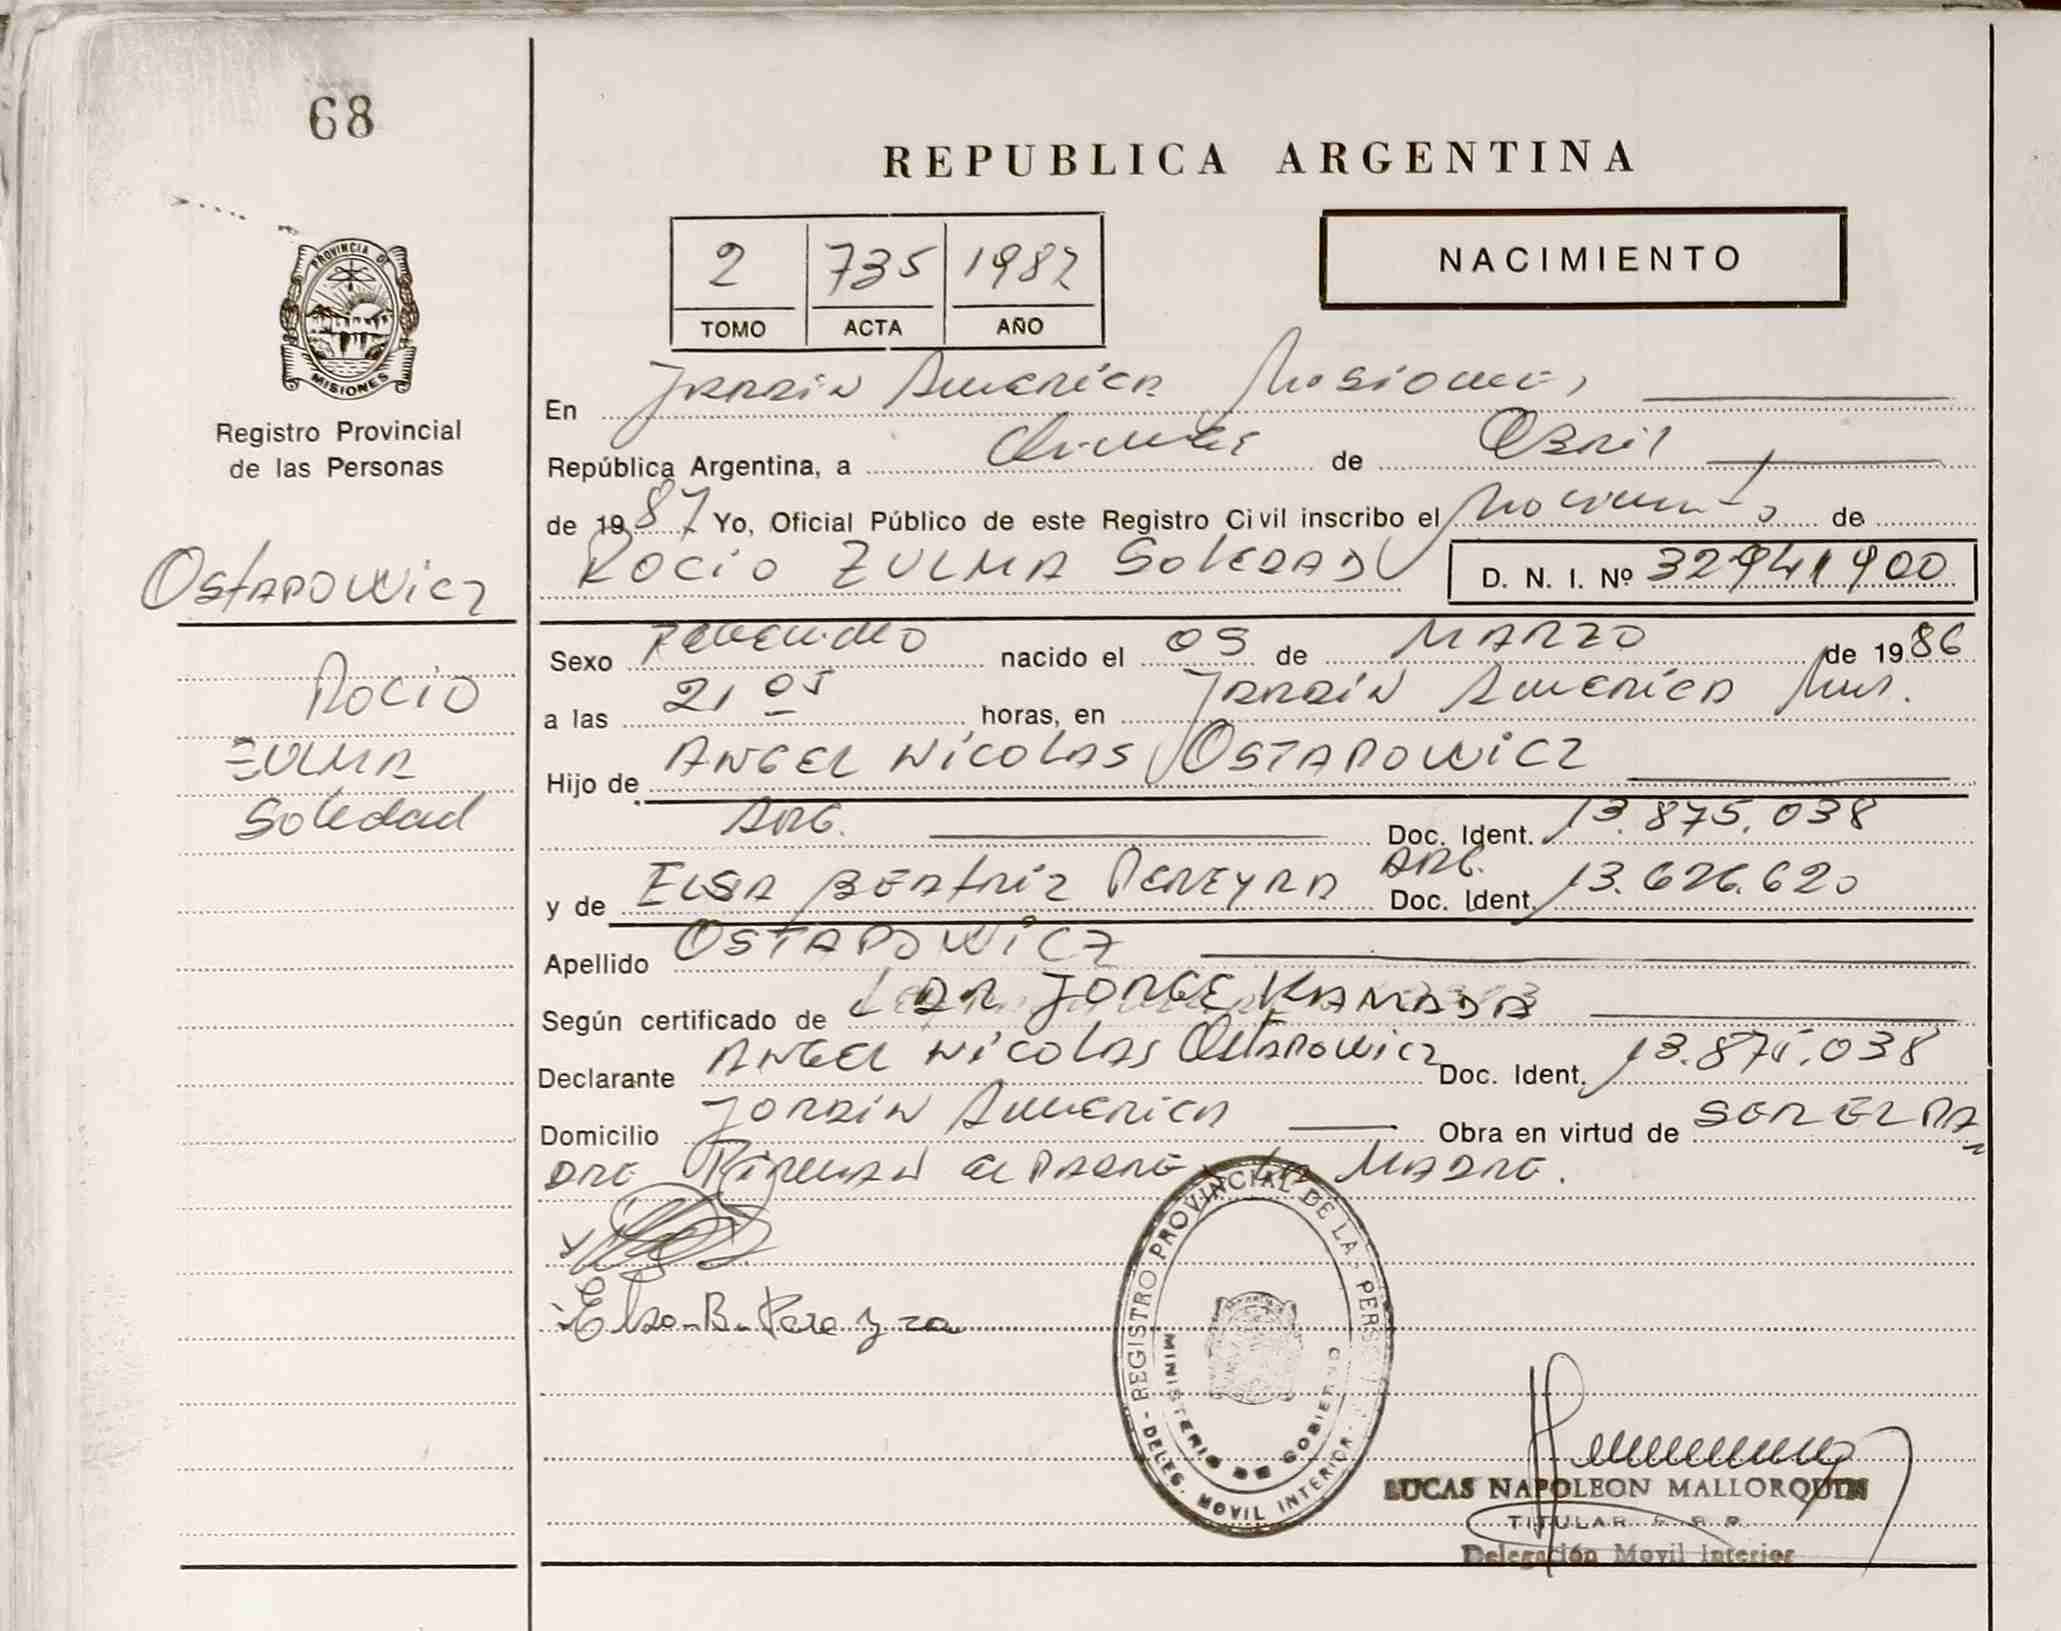 68
REPUBLICA ARGENTINA
2 735 1987
TOMO ACTA AÑO
NACIMIENTO
PROVINCIA DE
MISIONES
Registro Provincial
de las Personas
En Jardin America Misiones,
República Argentina, a de Abril
de 1987 Yo, Oficial Público de este Registro Civil inscribo el Nacimiento de
Rocio ZULMA Soledad D. N. I. Nº 32941900
OSTAPOWICZ
Rocio
ZULMA
Soledad
Sexo Femenino nacido el 05 de MARZO de 1986
a las 21 05 horas, en Jardin America Mis.
Hijo de ANGEL NICOLAS OSTAPOWICZ
ARG. Doc. Ident. 13.875.038
y de ELSA BEATRIZ PEREYRA ARG. Doc. Ident. 13.626.620
Apellido OSTAPOWICZ
Según certificado de DR JORGE KAMADA
Declarante ANGEL NICOLAS OSTAPOWICZ Doc. Ident. 13.875.038
Domicilio Jardin America Obra en virtud de SER EL PA
DRE Firman el PADRE y la MADRE.
Elsa B. Pereyra
REGISTRO PROVINCIAL DE LAS PERS
MINISTERIO DE GOBIERNO
DELEG. MOVIL INTERIOR
LUCAS NAPOLEON MALLORQUIN
TITULAR
Delegación Movil Interior